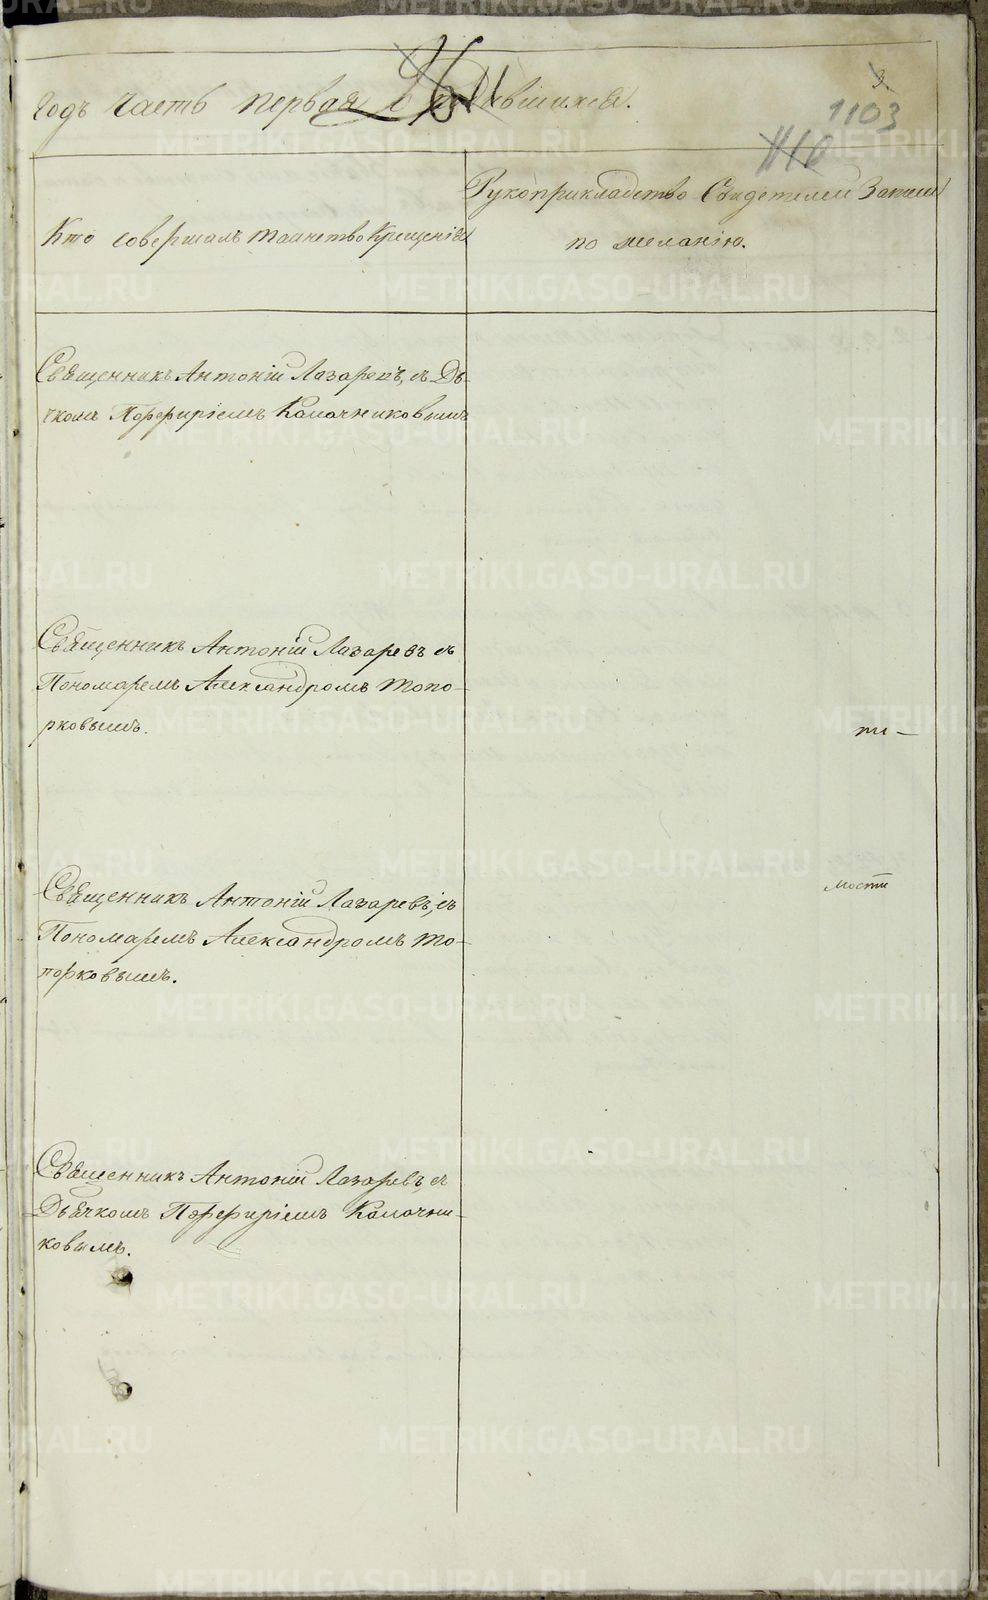 3.
годъ часть первая о родившихся.
1103
110
Кто совершалъ таинство Крещенія
Рукоприкладство Свидетелей Записи
по желанію.
Священникъ Антоній Лазаревъ, съ Дья-
чкомъ Порфиріемъ Калачниковымъ
Священникъ Антоній Лазаревъ съ
Пономаремъ Александромъ Топо-
рковымъ.
ти-
Священникъ Антоній Лазаревъ, съ
Пономаремъ Александромъ То-
порковымъ.
мости
Священникъ Антоній Лазаревъ, съ
Дьячкомъ Порфиріемъ Калачни-
ковымъ.
METRIKI.GASO-URAL.RU